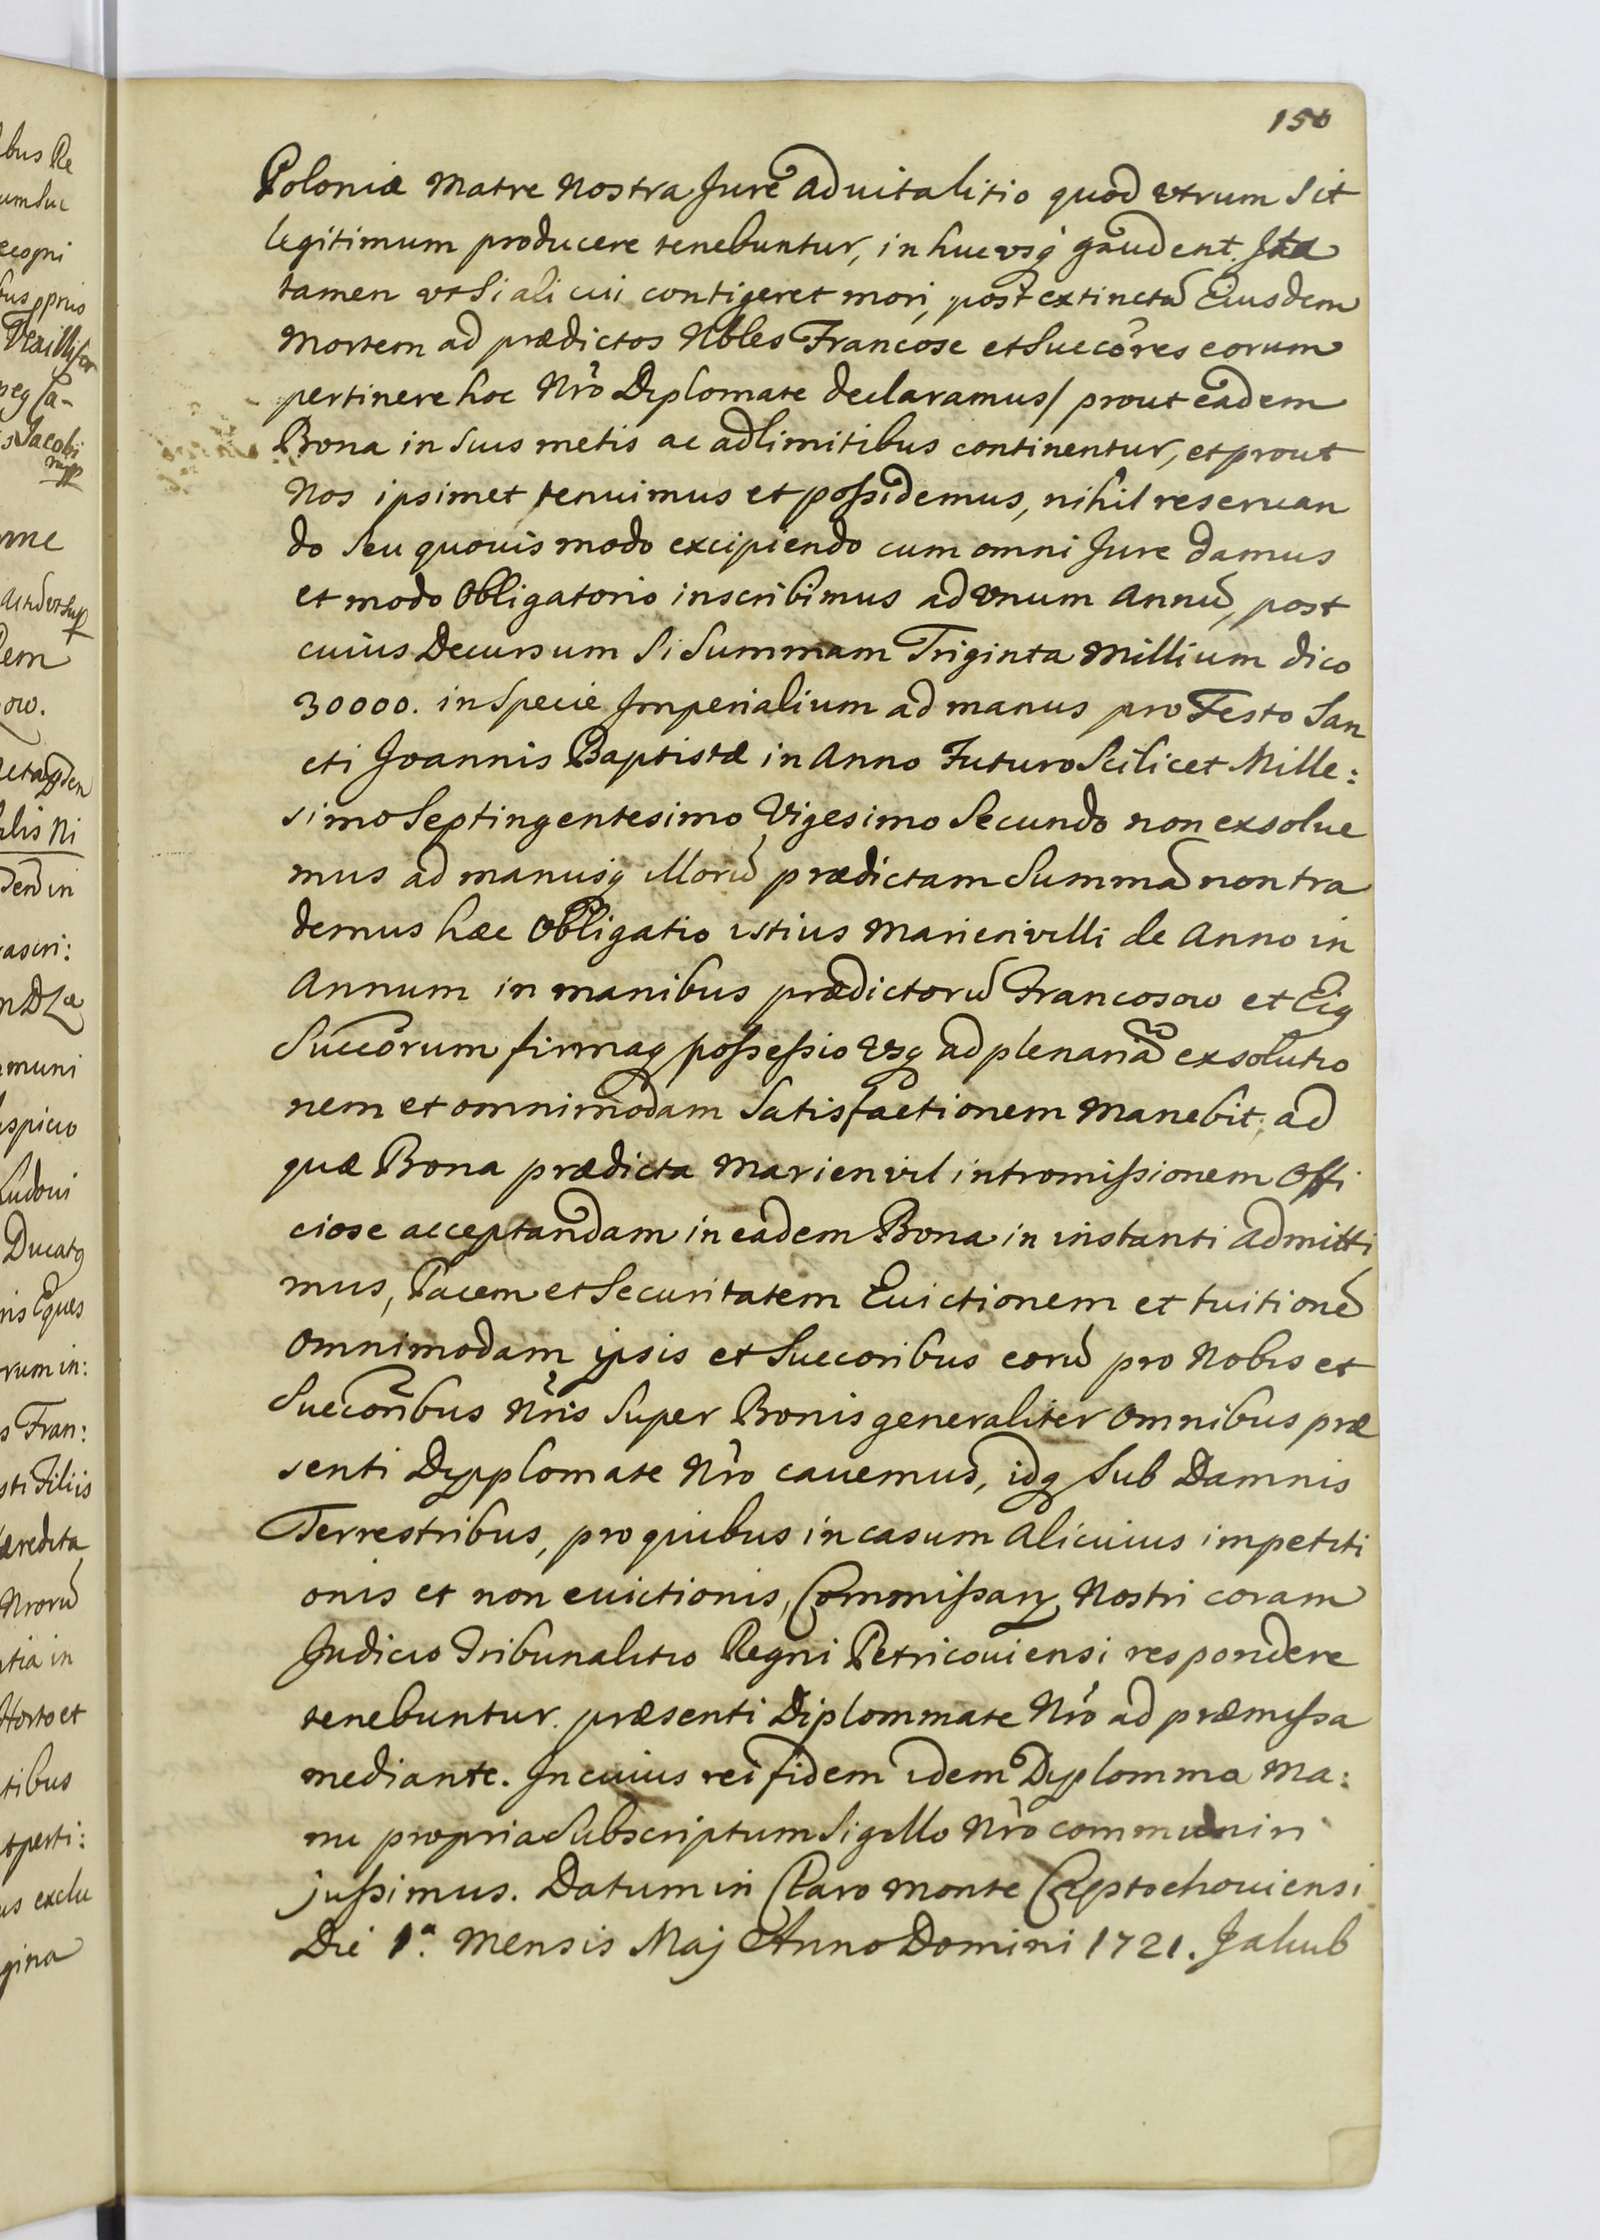 150
Poloniæ Matre Nostra Jure Aduitalitio quod vtrum Sit
legitimum producere tenebuntur, in hucvsq gaudent. Ita
tamen vt Si alicui contigeret mori, post extinctã Eiusdem
Mortem ad prædictos Nbles Francose et Succores eorum
pertinere hoc Nro Diplomate declaramus/ prout eadem
Bona in Suis metis ac adlimitibus continentur, et prout
Nos ipsimet tenuimus et possidemus, nihil reseruan
do Seu quouis modo excipiendo cum omni Jure damus
et modo Obligatorio inscribimus ad Vnum Annũ, post
cuius Decursum Si Summam Triginta Millium dico
30000. in Specie Imperialium ad manus pro Festo San
cti Joannis Baptistæ in Anno Futuro Scilicet Mille:
simo Septingentesimo Vigesimo Secundo non exsolue
mus ad manusq illorũ prædictam Summã non tra
demus hæc Obligatio istius Marienvilli de Anno in
Annum in manibus prædictorũ Francosow et Eiq
Succorum firmaq possessio Vsq ad plenariã exsolutio
nem et omnimodam Satisfactionem Manebit; ad
quæ Bona prædicta Marienvil intromissionem Offi
ciose acceptandam in eadem Bona in instanti admitti
mus, Pacem et Securitatem Euictionem et tuitionẽ
Omnimodam ipsis et Succoribus eorũ pro Nobis et
Succoribus Nris Super Bonis generaliter Omnibus præ
senti Dypplomate Nro cauemus, idq Sub Damnis
Terrestribus, pro quibus in casum Alicuius impetiti
onis et non euictionis, Commissarij Nostri coram
Judicio Tribunalitio Regni Petricouiensi respondere
tenebuntur. præsenti Diplommate Nro ad præmissa
mediante. In cuius rei fidem idem Dyplomma Ma:
nu propria Subscriptum Sigillo Nro communiri
jussimus. Datum in Claro Monte Częstochouiensi
Die 1ª. Mensis Maj Anno Domini 1721. Jakub